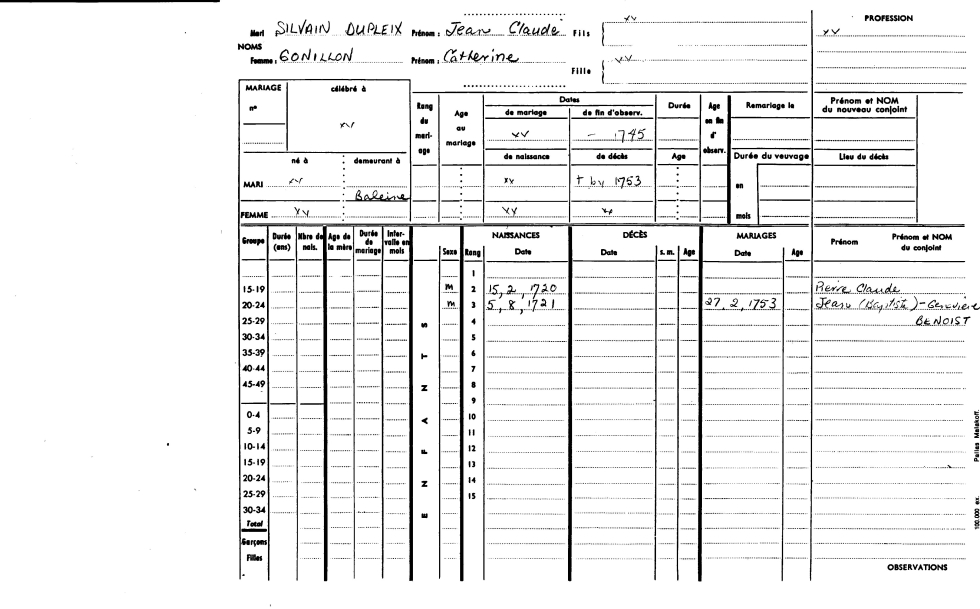 Mari SILVAIN DUPLEIX Prénom : Jean Claude Fils xv
PROFESSION
xv
NOMS
Femme : GONILLON Prénom : Catherine Fille xv
MARIAGE célébré à
n° xv
Rang du mariage
Age au mariage
Dates
de mariage de fin d'observ.
xv - 1745
Durée
Age en fin d'observ.
Remariage le
Prénom et NOM du nouveau conjoint
né à demeurant à
de naissance de décès Age Durée du veuvage Lieu du décès
MARI xv Baleine xv + by 1753 en
FEMME xv xv xv mois
Groupe Durée (ans) Nbre de nais. Age de la mère Durée de mariage Intervalle en mois
ENFANTS
Sexe Rang NAISSANCES Date DÉCÈS Date s. m. Age MARIAGES Date Age Prénom Prénom et NOM du conjoint
1
15-19 m 2 15, 2, 1720 Pierre Claude
20-24 m 3 5, 8, 1721 27, 2, 1753 Jean (Baptiste) - Geneviève
25-29 4 BENOIST
30-34 5
35-39 6
40-44 7
45-49 8
9
0-4 10
5-9 11
10-14 12
15-19 13
20-24 14
25-29 15
30-34
Total
Garçons
Filles
OBSERVATIONS
100.000 ex.